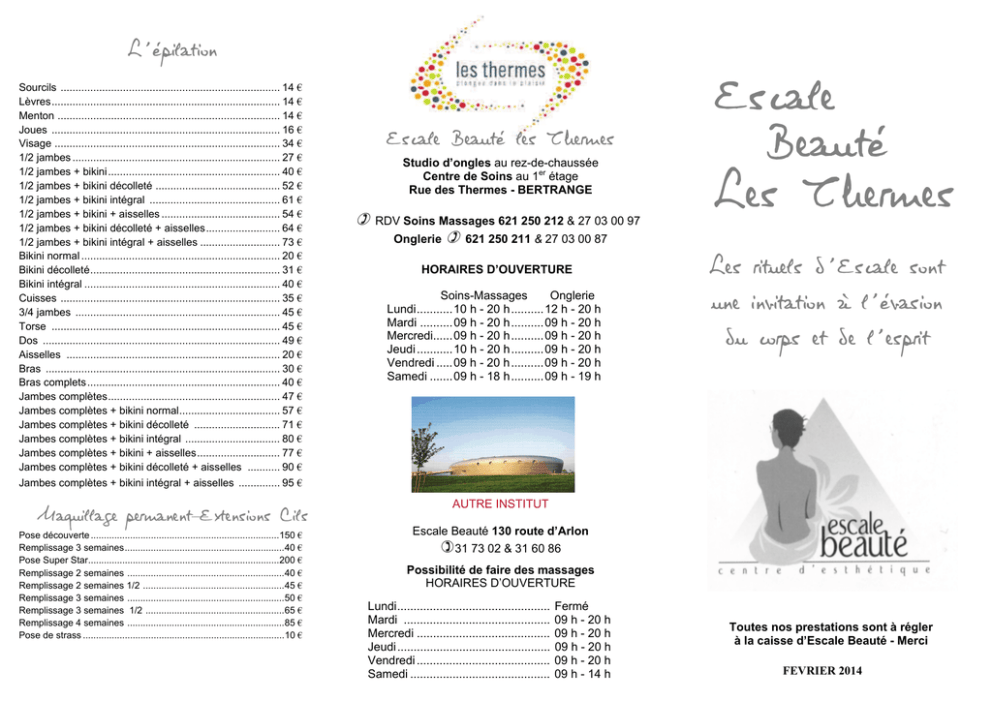 L'épilation
Sourcils ........ 14 €
Lèvres ........ 14 €
Menton ........ 14 €
Joues ........ 16 €
Visage ........ 34 €
1/2 jambes ........ 27 €
1/2 jambes + bikini ........ 40 €
1/2 jambes + bikini décolleté ........ 52 €
1/2 jambes + bikini intégral ........ 61 €
1/2 jambes + bikini + aisselles ........ 54 €
1/2 jambes + bikini décolleté + aisselles ........ 64 €
1/2 jambes + bikini intégral + aisselles ........ 73 €
Bikini normal ........ 20 €
Bikini décolleté ........ 31 €
Bikini intégral ........ 40 €
Cuisses ........ 35 €
3/4 jambes ........ 45 €
Torse ........ 45 €
Dos ........ 49 €
Aisselles ........ 20 €
Bras ........ 30 €
Bras complets ........ 40 €
Jambes complètes ........ 47 €
Jambes complètes + bikini normal ........ 57 €
Jambes complètes + bikini décolleté ........ 71 €
Jambes complètes + bikini intégral ........ 80 €
Jambes complètes + bikini + aisselles ........ 77 €
Jambes complètes + bikini décolleté + aisselles ........ 90 €
Jambes complètes + bikini intégral + aisselles ........ 95 €
Maquillage permanent-Extensions Cils
Pose découverte ........ 150 €
Remplissage 3 semaines ........ 40 €
Pose Super Star ........ 200 €
Remplissage 2 semaines ........ 40 €
Remplissage 2 semaines 1/2 ........ 45 €
Remplissage 3 semaines ........ 50 €
Remplissage 3 semaines 1/2 ........ 65 €
Remplissage 4 semaines ........ 85 €
Pose de strass ........ 10 €
les thermes
plongez dans le plaisir
Escale Beauté les Thermes
Studio d'ongles au rez-de-chaussée
Centre de Soins au 1er étage
Rue des Thermes - BERTRANGE
✆ RDV Soins Massages 621 250 212 & 27 03 00 97
Onglerie ✆ 621 250 211 & 27 03 00 87
HORAIRES D'OUVERTURE
Soins-Massages Onglerie
Lundi ........ 10 h - 20 h ........ 12 h - 20 h
Mardi ........ 09 h - 20 h ........ 09 h - 20 h
Mercredi ........ 09 h - 20 h ........ 09 h - 20 h
Jeudi ........ 10 h - 20 h ........ 09 h - 20 h
Vendredi ........ 09 h - 20 h ........ 09 h - 20 h
Samedi ........ 09 h - 18 h ........ 09 h - 19 h
AUTRE INSTITUT
Escale Beauté 130 route d'Arlon
✆31 73 02 & 31 60 86
Possibilité de faire des massages
HORAIRES D'OUVERTURE
Lundi ........ Fermé
Mardi ........ 09 h - 20 h
Mercredi ........ 09 h - 20 h
Jeudi ........ 09 h - 20 h
Vendredi ........ 09 h - 20 h
Samedi ........ 09 h - 14 h
Escale
Beauté
Les Thermes
Les rituels d'Escale sont
une invitation à l'évasion
du corps et de l'esprit
escale
beauté
centre d'esthétique
Toutes nos prestations sont à régler
à la caisse d'Escale Beauté - Merci
FEVRIER 2014